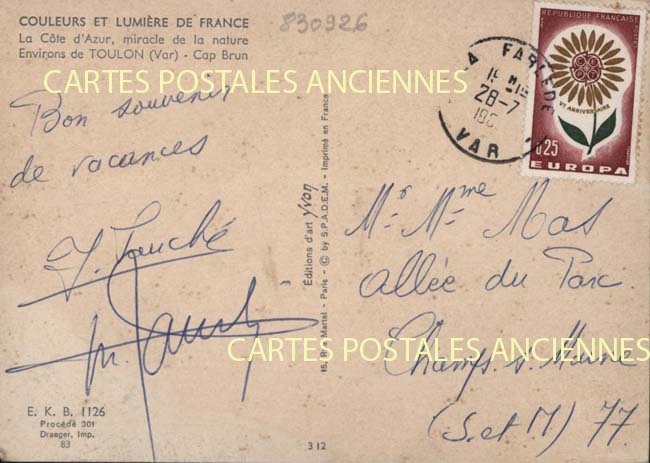 COULEURS ET LUMIÈRE DE FRANCE
La Côte d'Azur, miracle de la nature
Environs de TOULON (Var) - Cap Brun
830926
CARTES POSTALES ANCIENNES
Bon souvenir
de vacances
J. Touché
LA FARLEDE
28-7
VAR
REPUBLIQUE FRANÇAISE
VE ANNIVERSAIRE
0,25
EUROPA
Mr Mme Mas
Allée du Parc
Champs s. Marne
(S. et M) 77.
CARTES POSTALES ANCIENNES
Éditions d'art yvon
15, Martel - Paris - © by S.P.A.D.E.M. - Imprimé en France
E. K. B. 1126
Procédé 301
Draeger, Imp.
83
312